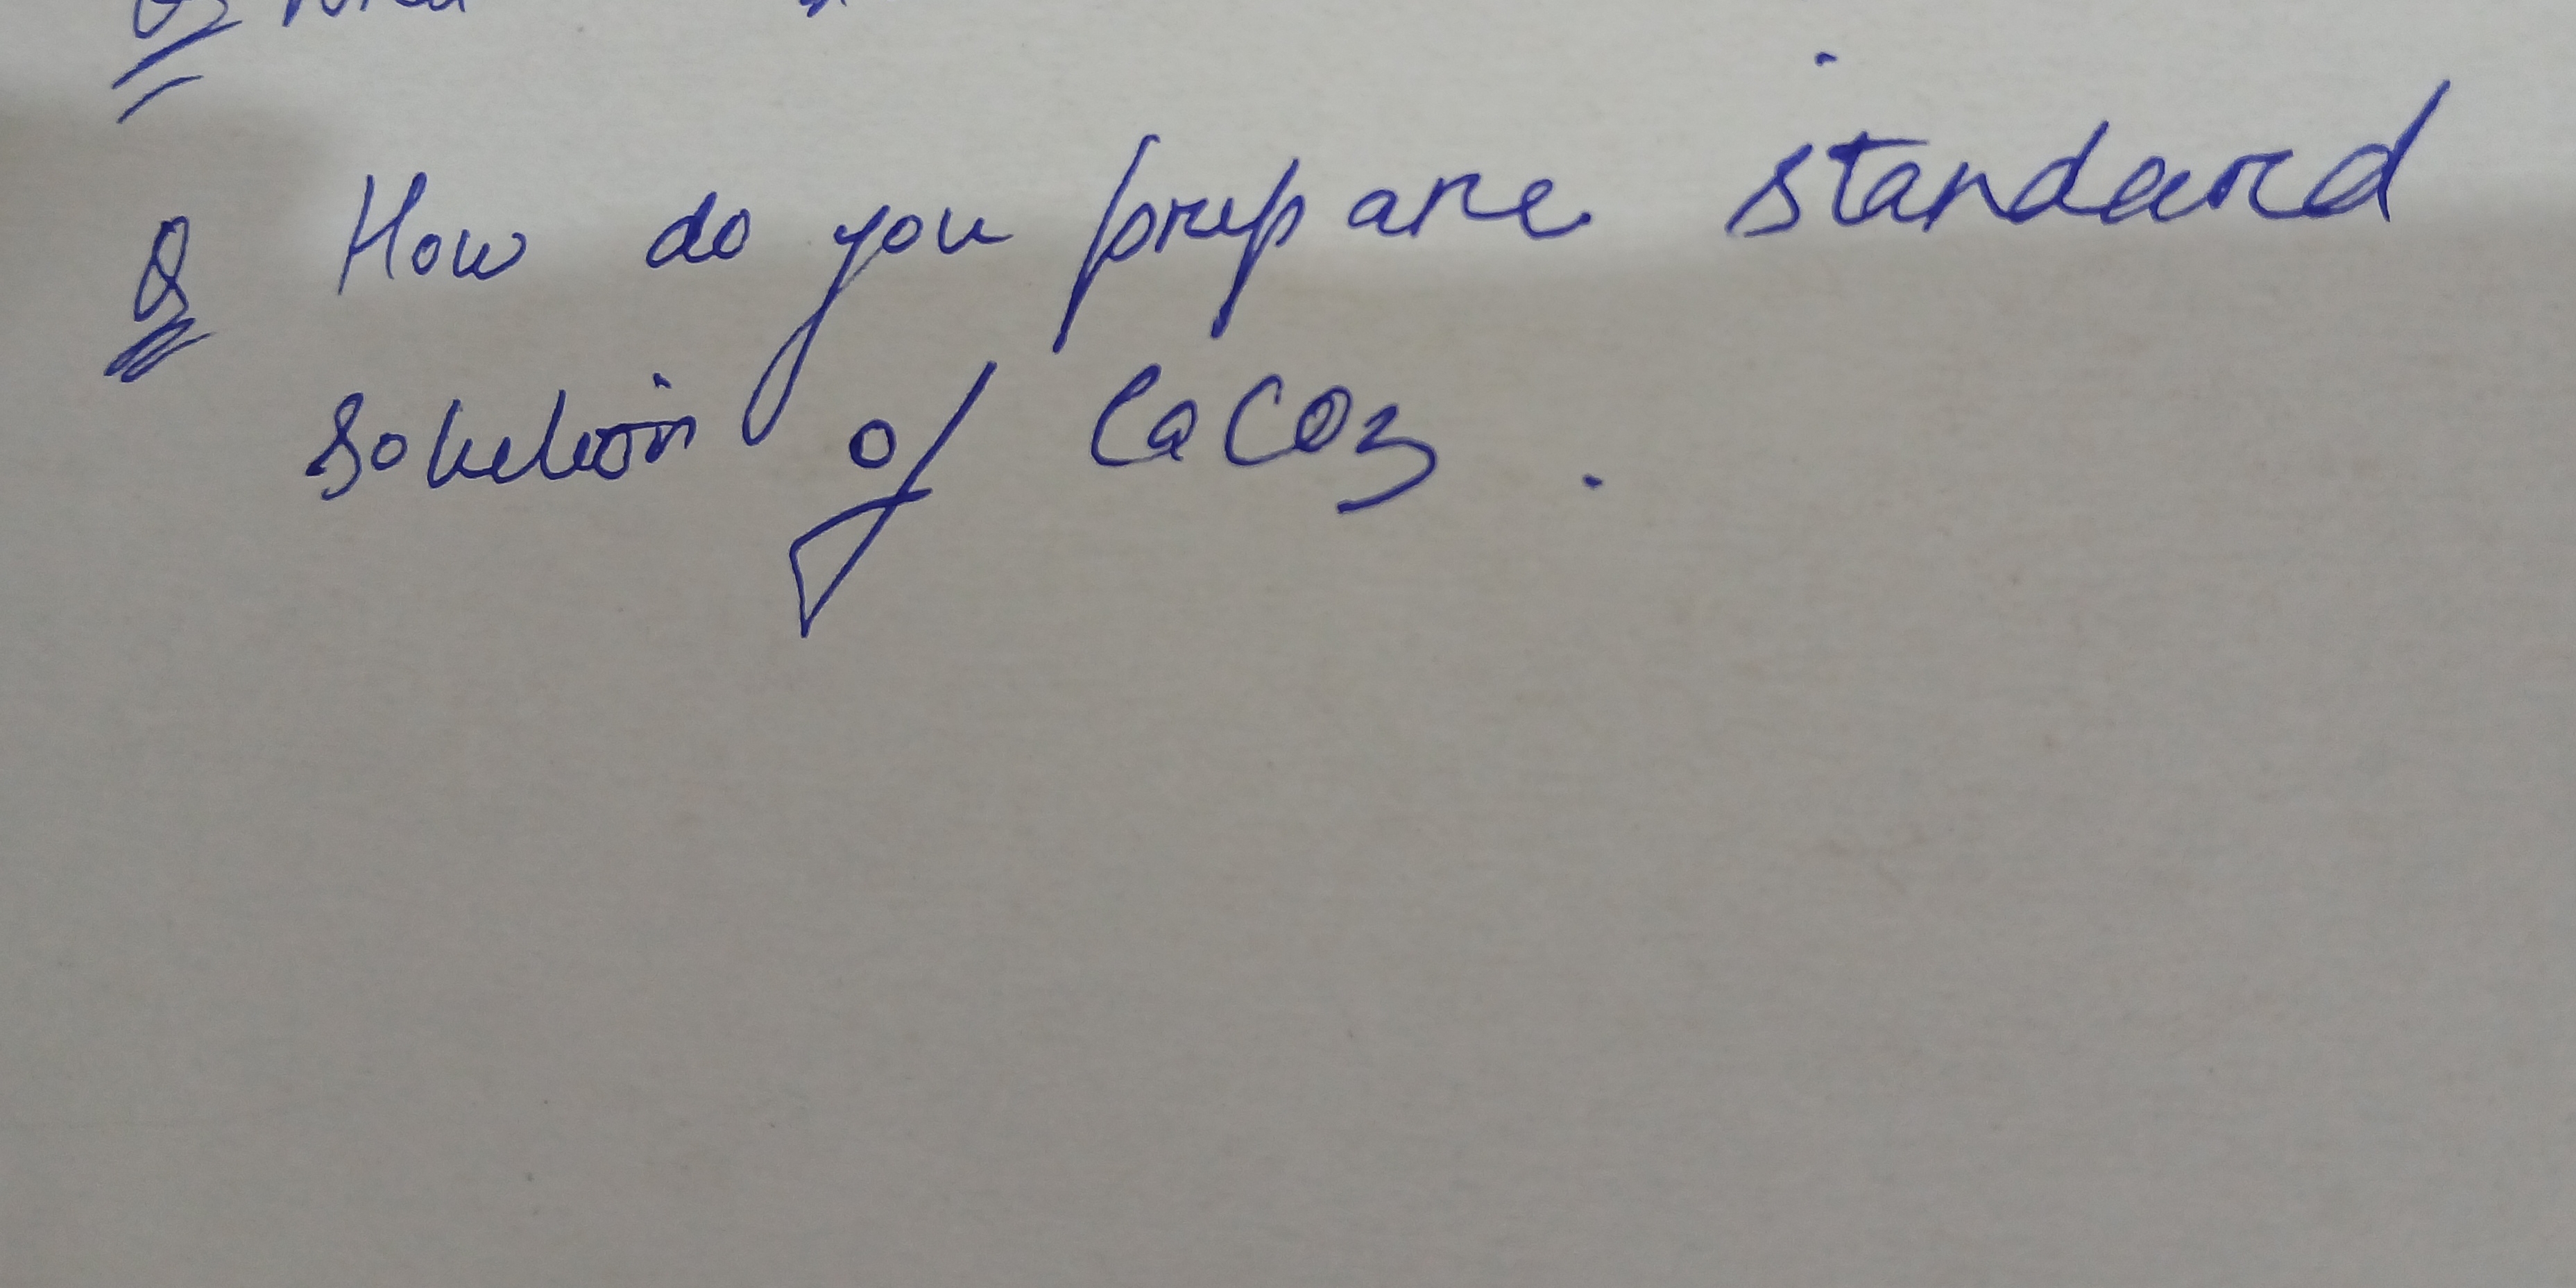 Q How do you prepare standard
solution of CaCO3.